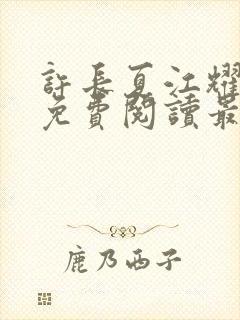 許長夏江耀
免費閱讀最
鹿乃西子